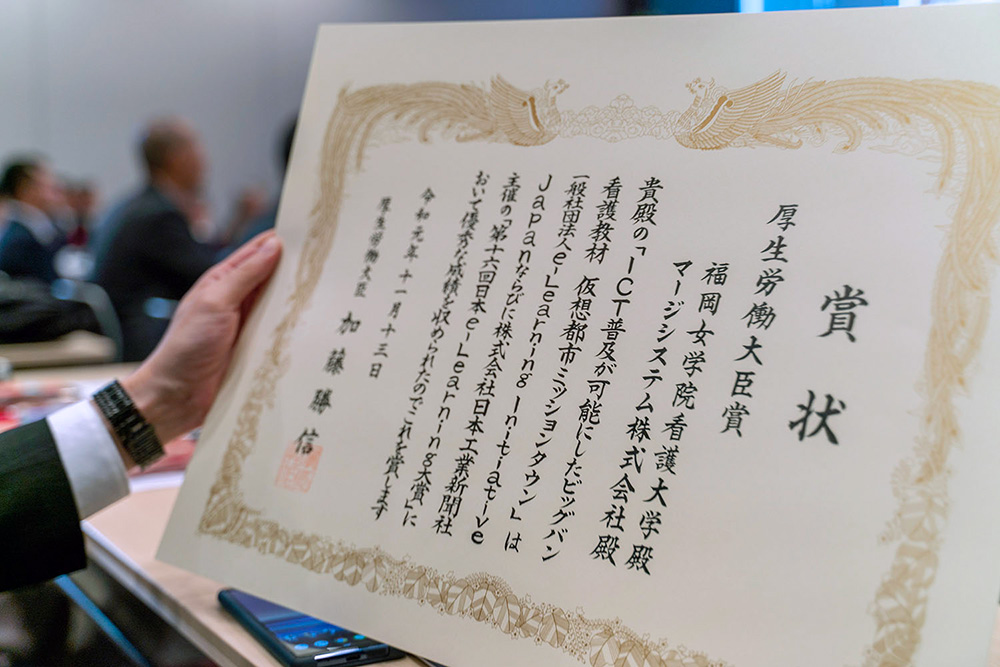 賞状
厚生労働大臣賞
福岡女学院看護大学殿
マージシステム株式会社殿
貴殿の「ICT普及が可能にしたビッグバン
看護教材 仮想都市ミッションタウン」は
一般社団法人e-Learning Initiative
Japanならびに株式会社日本工業新聞社
主催の「第十六回日本e-Learning大賞」に
おいて優秀な成績を収められたのでこれを賞します
令和元年十一月十三日
厚生労働大臣 加藤勝信